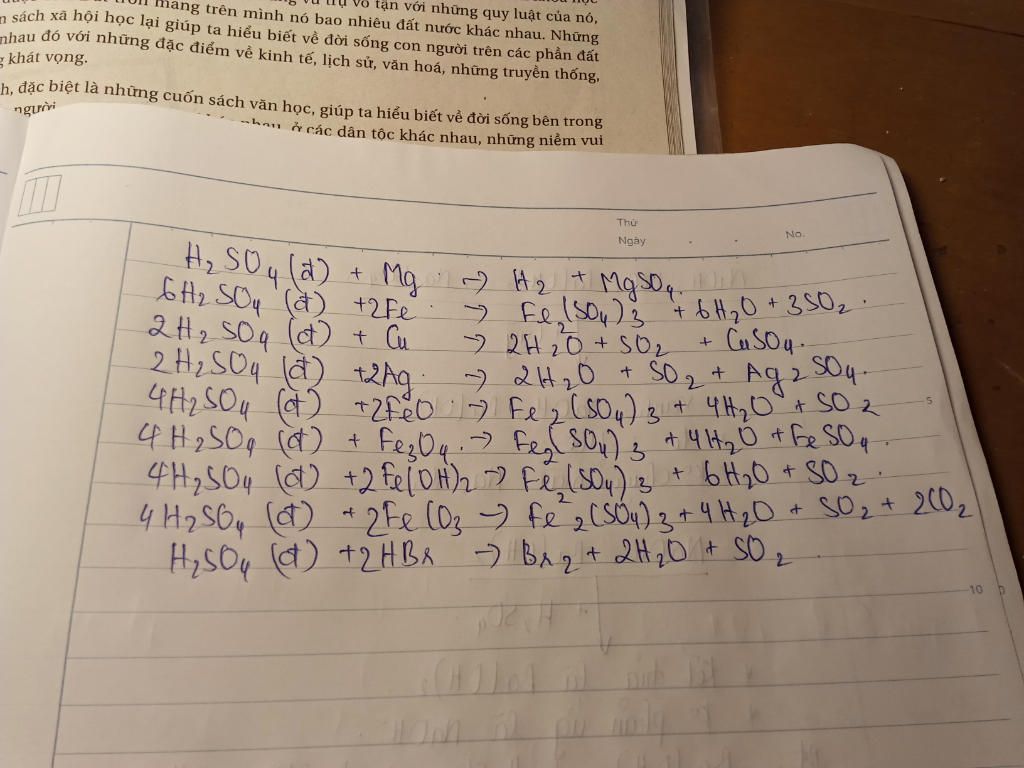 sách xã hội học lại giúp ta hiểu biết về đời sống con người trên các phần đất
nhau đó với những đặc điểm về kinh tế, lịch sử, văn hoá, những truyền thống,
khát vọng.
đặc biệt là những cuốn sách văn học, giúp ta hiểu biết về đời sống bên trong
người
nhau, ở các dân tộc khác nhau, những niềm vui
Thứ
Ngày . . No.
H2SO4 (đ) + Mg → H2 + MgSO4.
6H2SO4 (đ) +2Fe → Fe2(SO4)3 + 6H2O + 3SO2.
2H2SO4 (đ) + Cu → 2H2O + SO2 + CuSO4.
2H2SO4 (đ) +2Ag → 2H2O + SO2 + Ag2SO4.
4H2SO4 (đ) +2FeO → Fe2(SO4)3 + 4H2O + SO2
5
4H2SO4 (đ) + Fe3O4 → Fe2(SO4)3 + 4H2O + FeSO4.
4H2SO4 (đ) +2Fe(OH)2 → Fe2(SO4)3 + 6H2O + SO2.
4H2SO4 (đ) +2FeCO3 → Fe2(SO4)3 + 4H2O + SO2 + 2CO2
H2SO4 (đ) +2HBr → Br2 + 2H2O + SO2
10